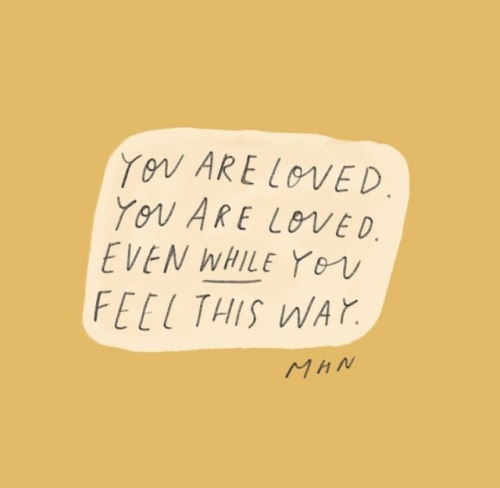 YOU ARE LOVED.
YOU ARE LOVED.
EVEN WHILE YOU
FEEL THIS WAY.
MHN